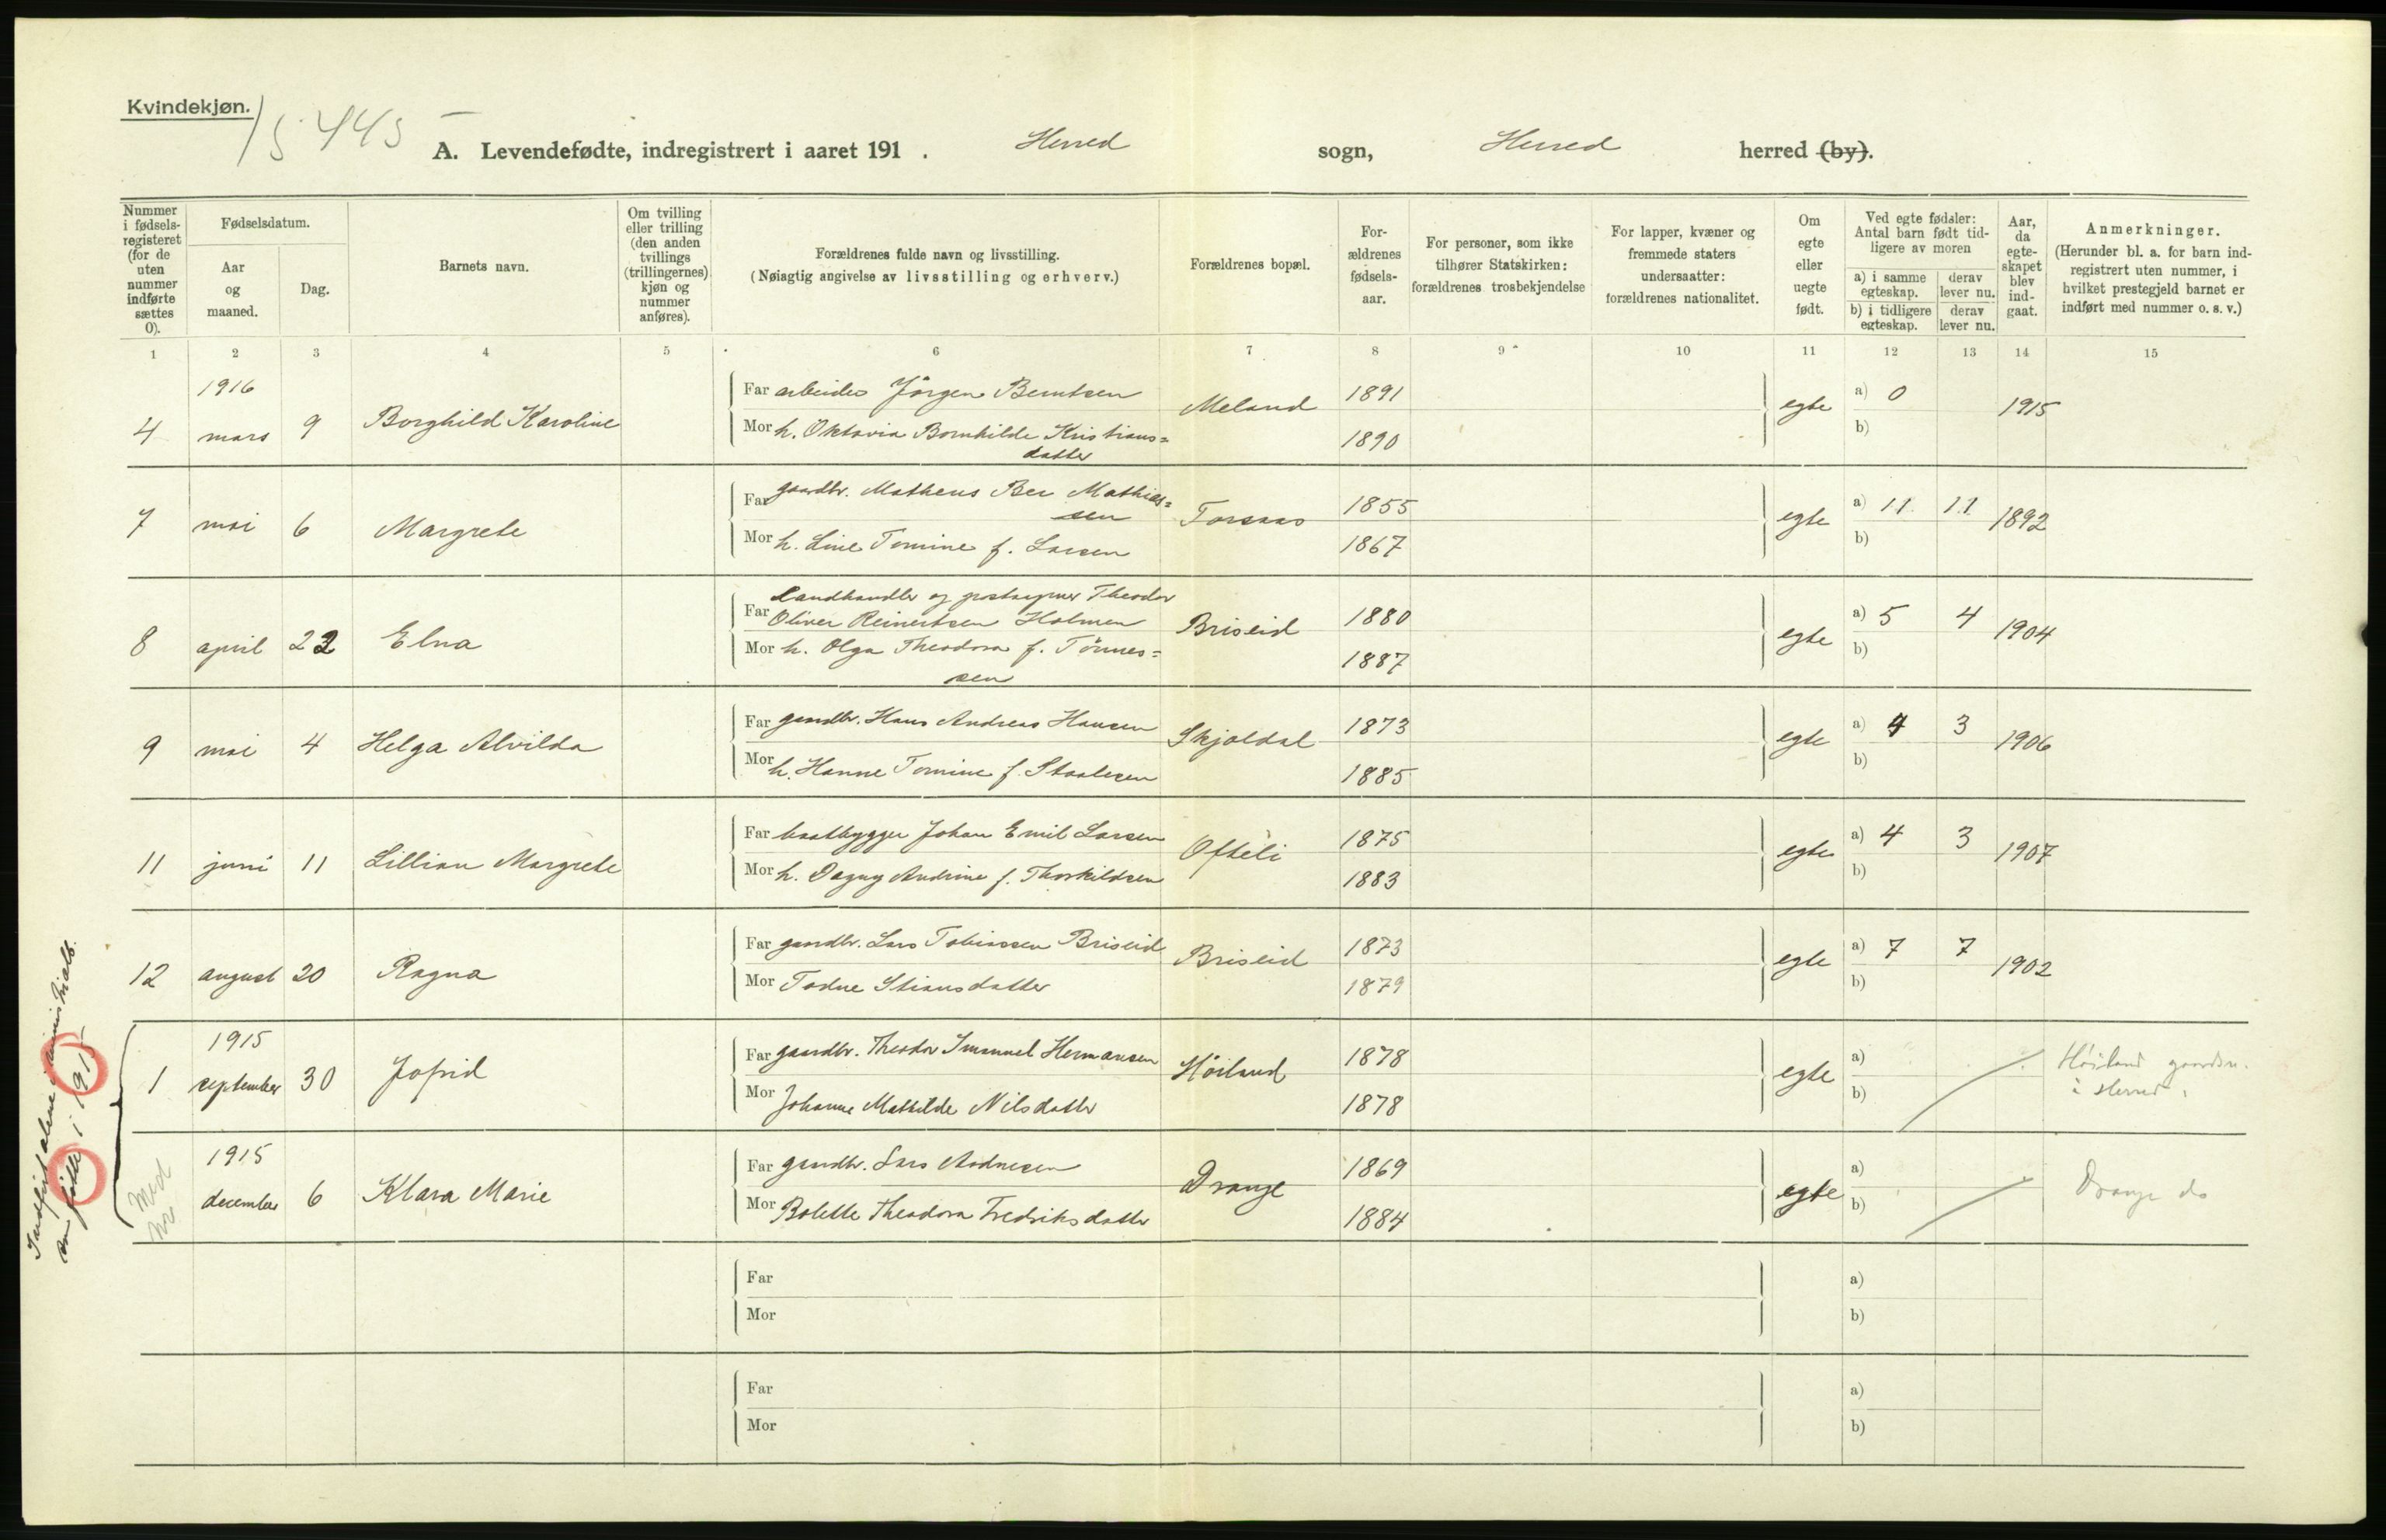 Kvindekjøn.
15443
A. Levendefødte, indregistrert i aaret 191 . Herred sogn, Herred herred (by).
Nummer i fødsels-registeret (for de uten nummer indførte sættes 0).
Fødselsdatum.
Aar og maaned.
Dag.
Barnets navn.
Om tvilling eller trilling (den anden tvillings (trillingernes) kjøn og nummer anføres).
Forældrenes fulde navn og livsstilling.
(Nøiagtig angivelse av livsstilling og erhverv.)
Forældrenes bopæl.
For-ældrenes fødsels-aar.
For personer, som ikke tilhører Statskirken: forældrenes trosbekjendelse
For lapper, kvæner og fremmede staters undersaatter: forældrenes nationalitet.
Om egte eller uegte født.
Ved egte fødsler: Antal barn født tid-ligere av moren
a) i samme egteskap.
derav lever nu.
b) i tidligere egteskap.
derav lever nu.
Aar, da egte-skapet blev ind-gaat.
Anmerkninger.
(Herunder bl. a. for barn ind-registrert uten nummer, i hvilket prestegjeld barnet er indført med nummer o. s. v.)
1 2 3 4 5 6 7 8 9 10 11 12 13 14 15
1916
4 mars 9 Borghild Karoline
Far arbeider Jörgen Berntsen Meland 1891 egte a) 0 1915
Mor h. Oktavia Bornhilde Kristians=
datter 1890 b)
7 mai 6 Margrete
Far gaardbr. Matheus Ber Mathias=
sen Torsaas 1855 egte a) 11 11 1892
Mor h. Line Tomine f. Larsen 1867 b)
8 april 22 Elna
Far Landhandler og postaapner Theodor
Oliver Reinertsen Holmen Briseid 1880 egte a) 5 4 1904
Mor h. Olga Theodora f. Tönnes=
sen 1887 b)
9 mai 4 Helga Alvilda
Far gaardbr. Hans Andreas Hansen Skjoldal 1873 egte a) 4 3 1906
Mor h. Hanne Tomine f. Staalesen 1885 b)
11 juni 11 Lillian Margrete
Far baatbygger Johan Emil Larsen Ofteli 1875 egte a) 4 3 1907
Mor h. Dagny Andrine f. Thorkildsen 1883 b)
12 august 20 Ragna
Far gaardbr. Lars Tobiassen Briseid Briseid 1873 egte a) 7 7 1902
Mor Todne Stiansdatter 1879 b)
1915
1 september 30 Jofrid
Far gaardbr. Theodor Imanuel Hermansen Höiland 1878 egte a)
Mor Johanne Mathilde Nilsdatter 1878 b)
Höiland
i Herred
1915
december 6 Klara Marie
Far gaardbr. Lars Andresen Drange 1869 egte a)
Mor Bolette Theodora Fredriksdatter 1884 b)
Drange do
Med
i 1915
Far a)
Mor b)
Far a)
Mor b)